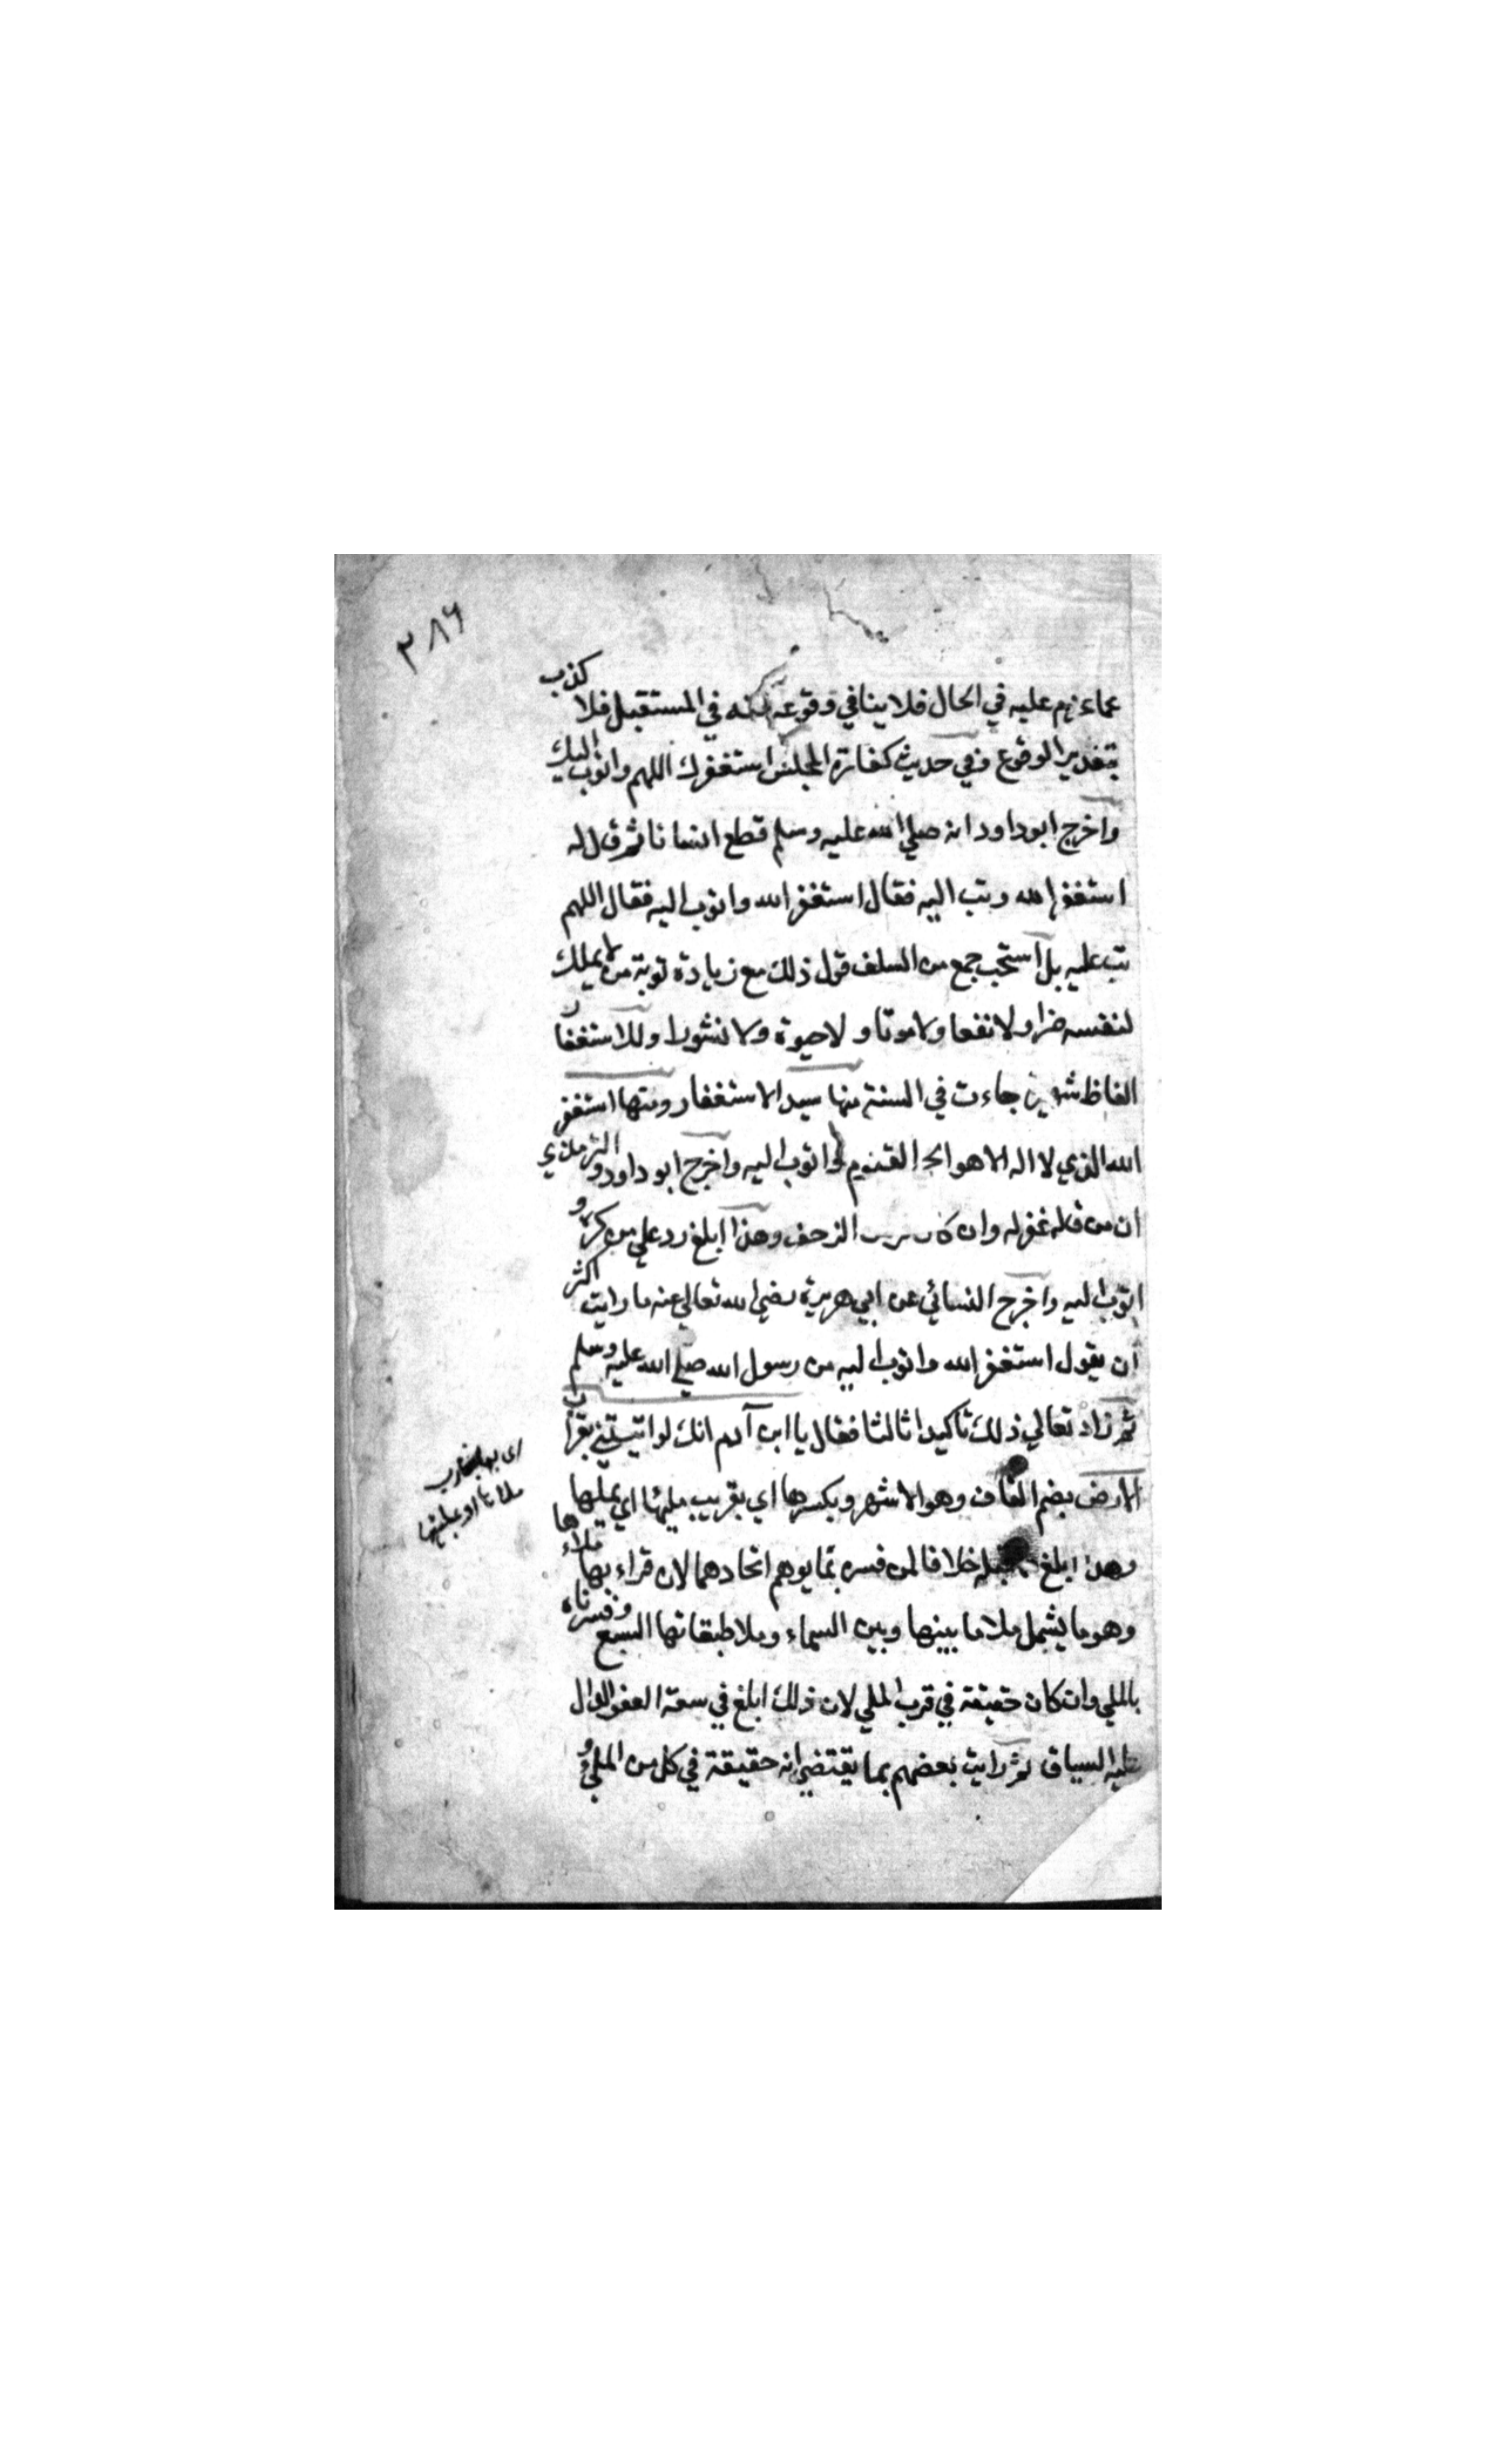 ٣٨٦
عما عزم عليه في الحال فلا ينافي وقوعه منه في المستقبل فلا كذب
بتقدير الوقوع وفي حديث كفارة المجلس استغفرك اللهم واتوب اليك
واخرج ابوداود انه صلي الله عليه وسلم قطع انسانا ثم قال له
استغفر الله وتب اليه فقال استغفر الله واتوب اليه فقال اللهم
تب عليه بل استحب جمع من السلف قول ذلك مع زيادة توبة من لا يملك
لنفسه ضرا ولا نفعا ولا موتا ولا حيوة ولا نشورا وللاستغفار
الفاظ شهيرة جاءت في السنة منها سيد الاستغفار ومنها استغفر
الله الذي لا اله الا هو الحي القيوم واتوب اليه واخرج ابو داود والترمذي
ان من قاله غفر له وان كان فر من الزحف وهذا ابلغ رد علي من كره و
اتوب اليه واخرج النسائي عن ابي هريرة رضي الله تعالي عنه ما رايت اكثر
ان يقول استغفر الله واتوب اليه من رسول الله صلي الله عليه وسلم
ثم زاد تعالي ذلك تاكيدا ثالثا فقال يا ابن آدم انك لو اتيتني بقراب
الارض بضم القاف وهو الاشهر وبكسرها اي بقريب مليها اي يملها
وهذا ابلغ قبله خلافا لمن فسره بما يوهم اتحادهما لان قراء بها ملاءها
وهو ما يشمل ملا ما بينها وبين السماء وملا طبقاتها السبع وفسرناه
بالملي وان كان حقيقة في قرب الملي لان ذلك ابلغ في سعة العفو الدال
عليه السياق ثم رايت بعضهم بما يقتضي انه حقيقة في كل من الملي و
اي بما يقارب
ملانا او يملئها